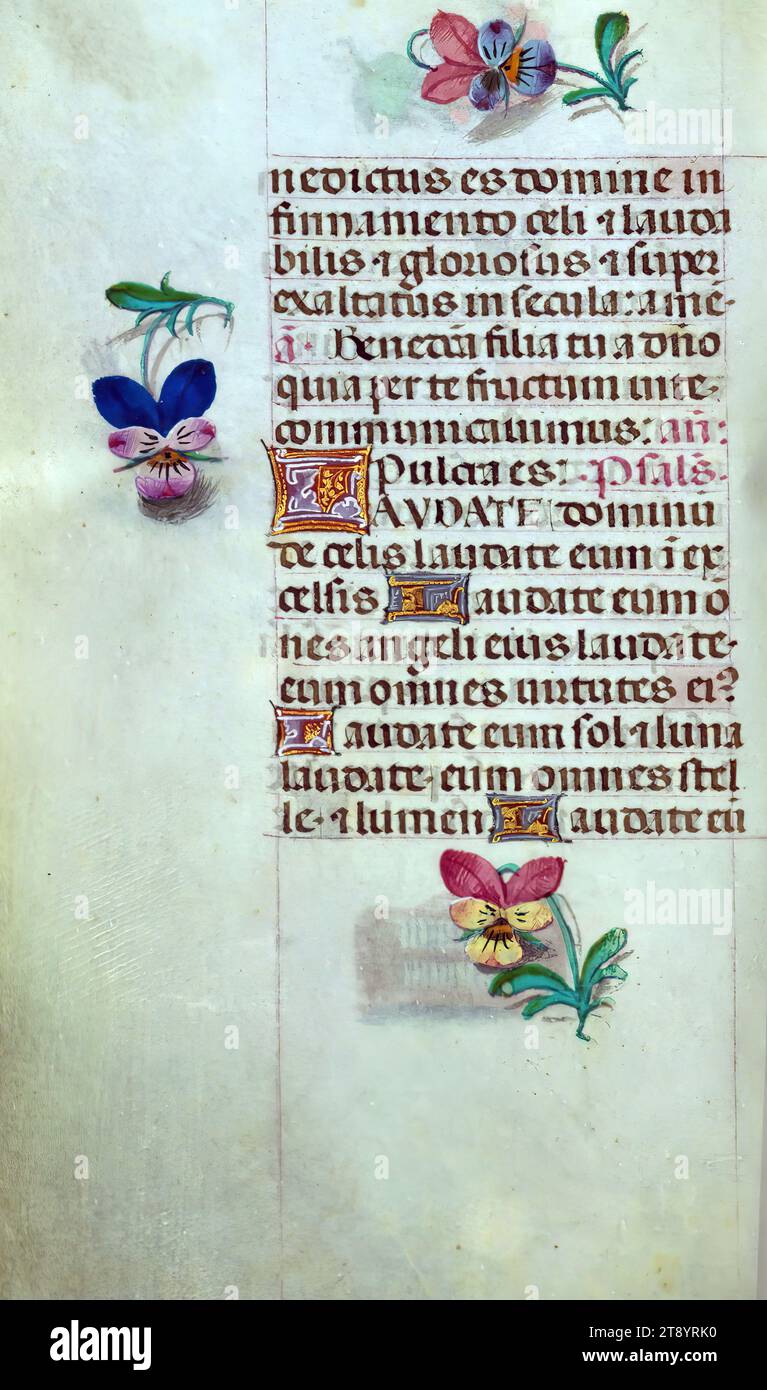 nedictus es domine in
firmamento celi ⁊ lauda
bilis ⁊ gloriosus ⁊ super
exaltatus in secula: amē.
ā. Benedcā filia tu a dño
quia per te fructum uite
communicauimus: añ:
Pulcra es: Psalś.
LAVDATE dominū
de celis laudate eum ī ex
celsis Laudate eum ō
nes angeli eius laudate
eum omnes uirtutes ei?
Laudate eum sol ⁊ luna
laudate eum omnes stel
le ⁊ lumen Laudate eū
alamy
Image ID: 2T8YRK0
www.alamy.com